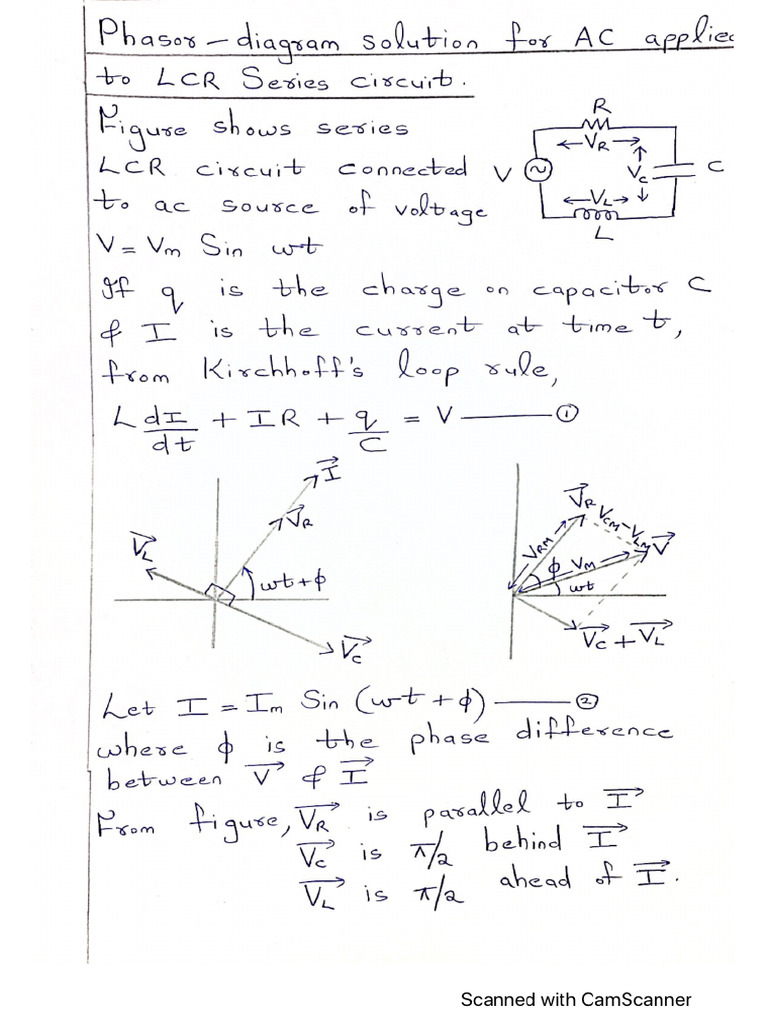 Phasor-diagram solution for AC applied
to LCR Series circuit.
Figure shows series
LCR circuit connected
to ac source of voltage
V = Vm Sin wt
R
←VR→
V
Vc
C
←VL→
L
If q is the charge on capacitor C
& I is the current at time t,
from Kirchhoff's loop rule,
L dI/dt + IR + q/C = V ——— ①
I⃗
V⃗R
V⃗L
wt+φ
V⃗c
V⃗R
VCM-VLM
VRM
V⃗
φ
VM
wt
V⃗c + V⃗L
Let I = Im Sin (wt + φ) ——— ②
where φ is the phase difference
between V⃗ & I⃗
From figure, V⃗R is parallel to I⃗
V⃗c is π/2 behind I⃗
V⃗L is π/2 ahead of I⃗.
Scanned with CamScanner